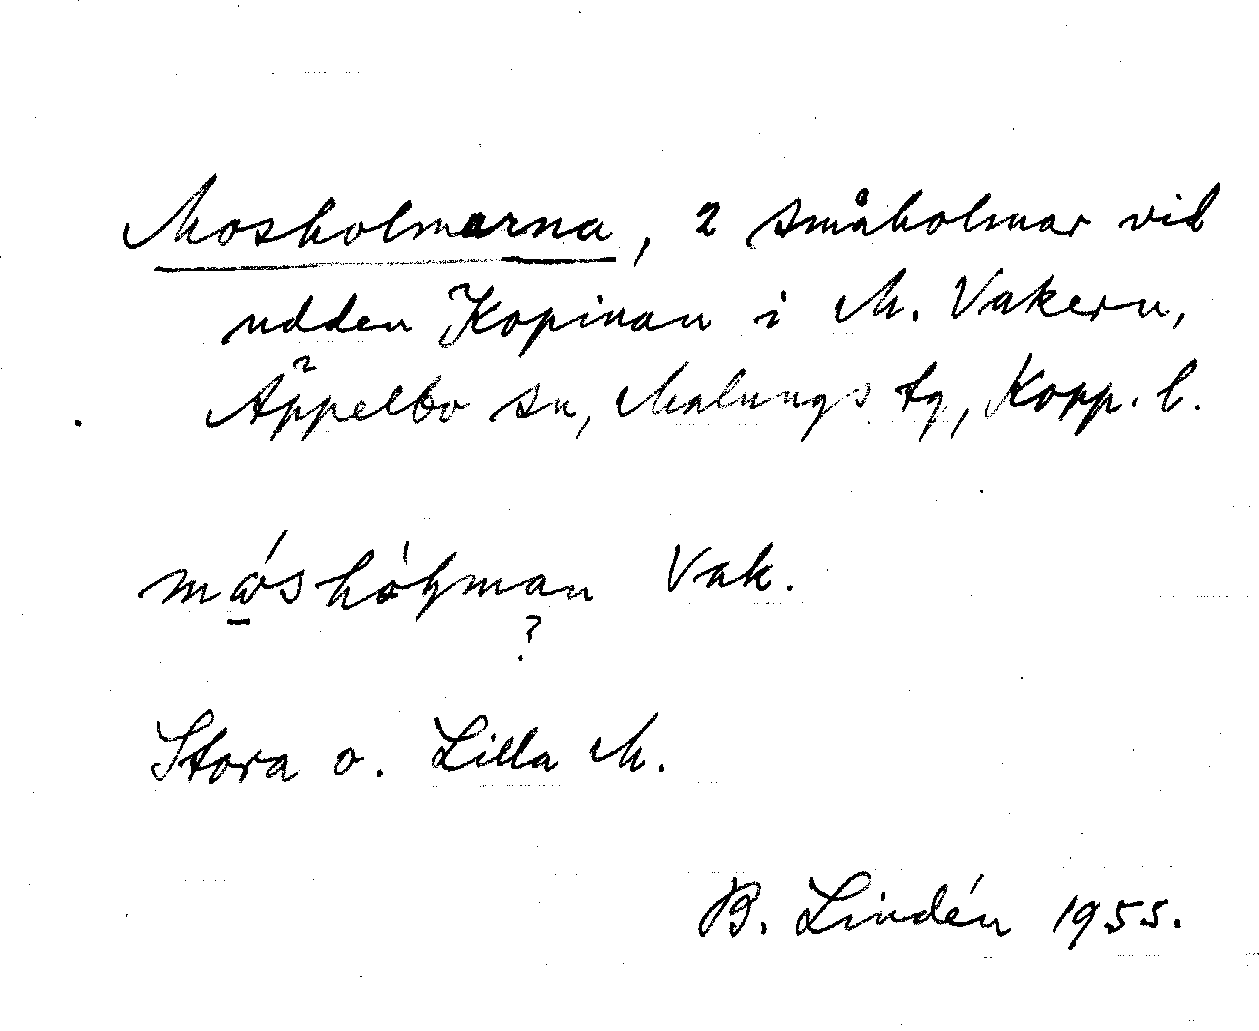 Mosholmarna, 2 småholmar vid
udden Kopinan i M. Vakern,
Äppelbo sn, Malungs tg, Kopp. l.
Vak.
?
Stora o. Lilla M.
B. Lindén 1955.